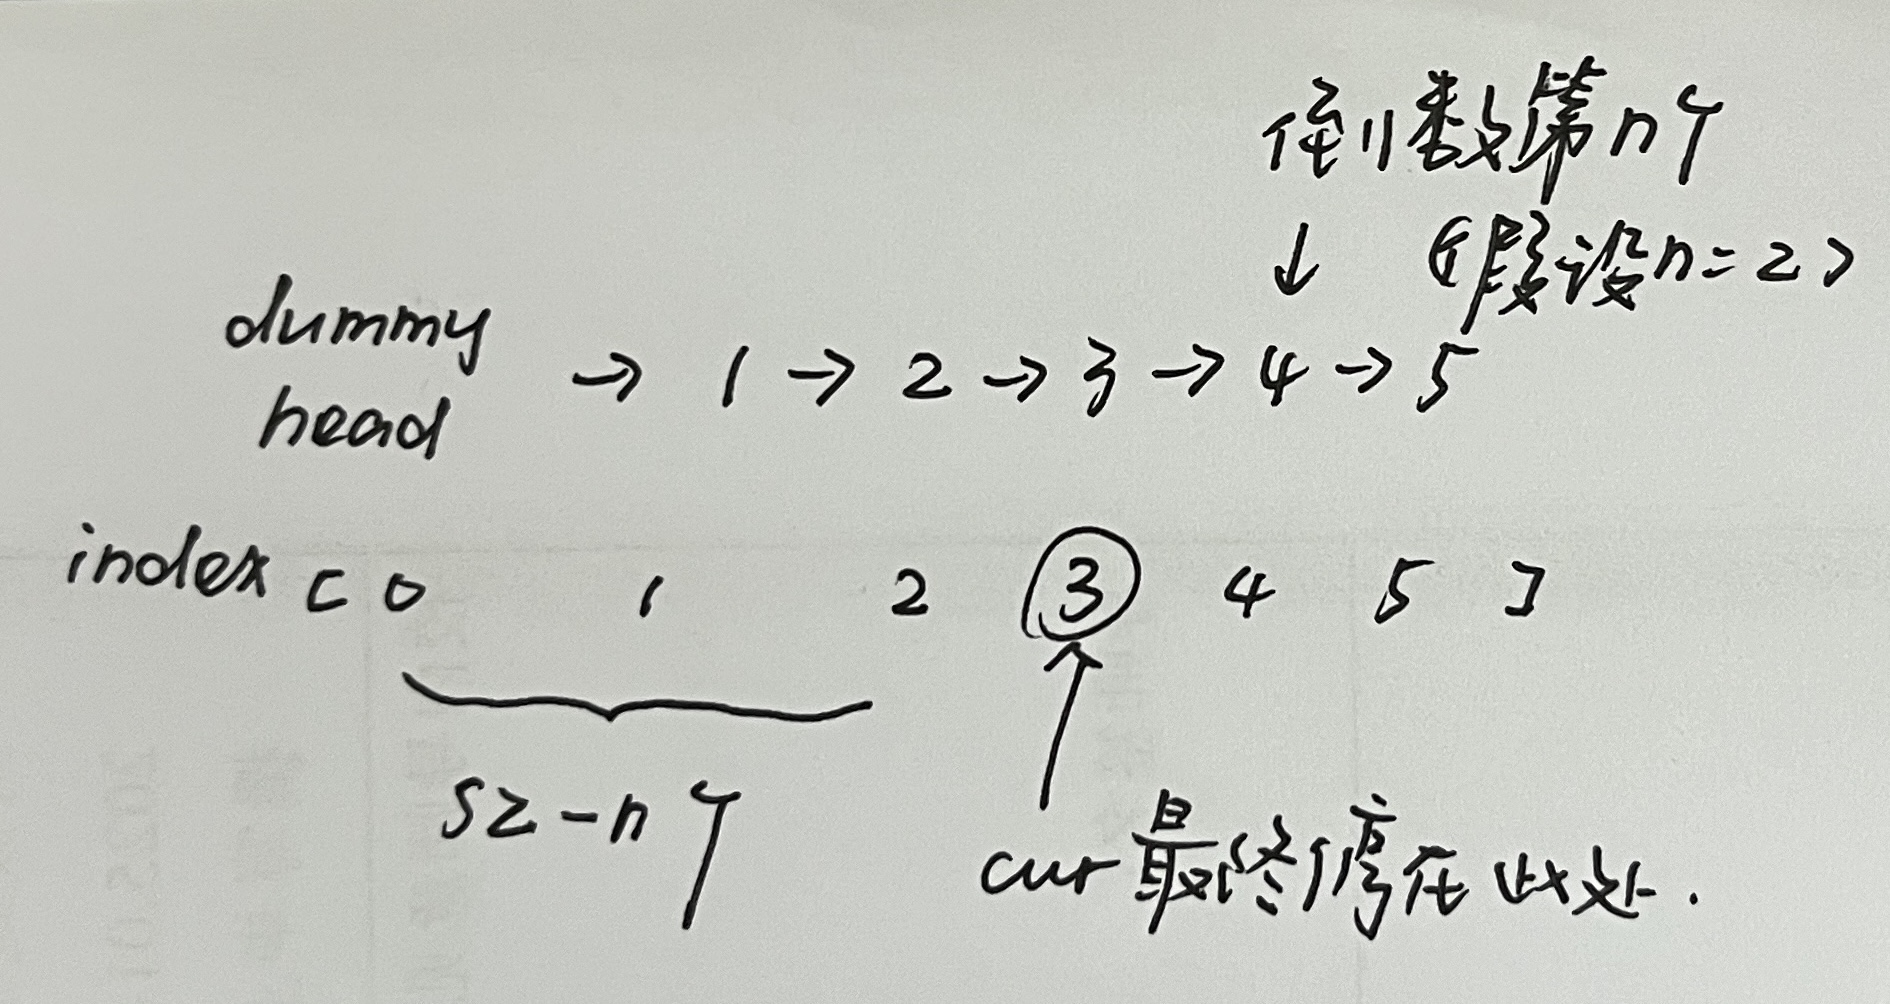 倒数第n个
↓ (假设n=2)
dummy head → 1 → 2 → 3 → 4 → 5
index [ 0 1 2 3 4 5 ]
sz-n个
cur最终停在此处.